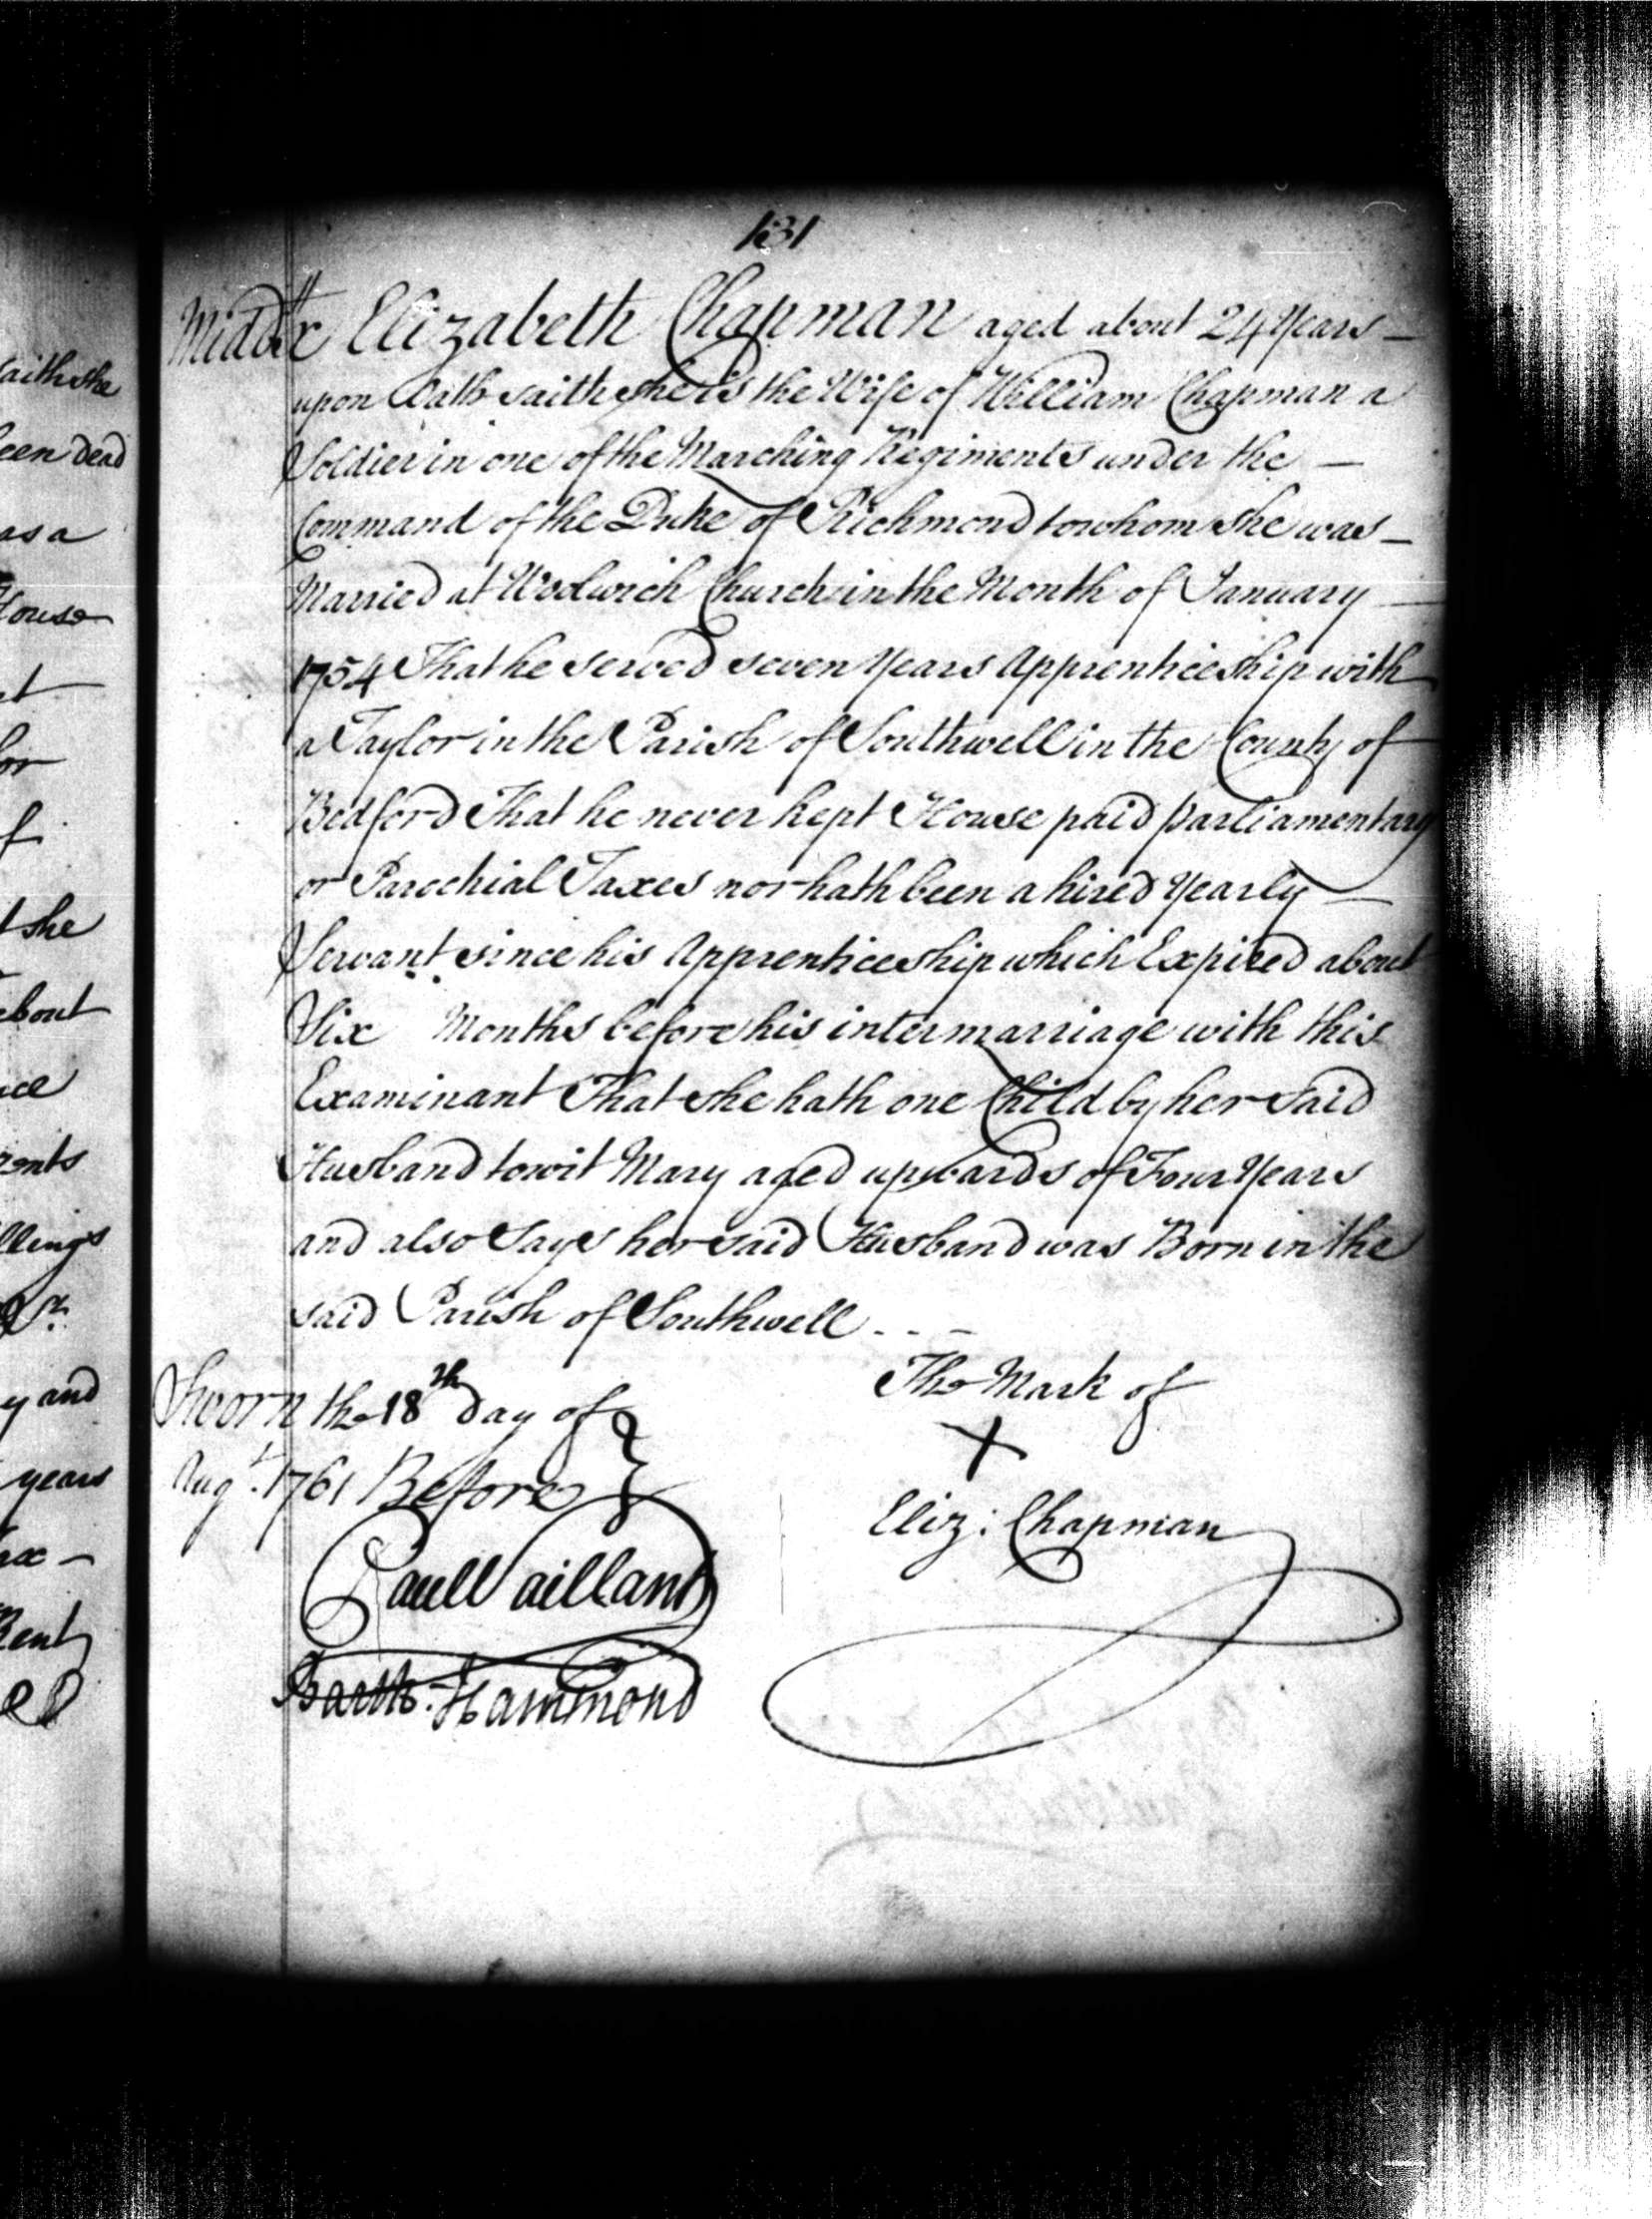 131
Middx Elizabeth Chapman aged about 24 Years —
upon Oath saith she is the Wife of William Chapman a
Soldier in one of the Marching Regiments under the —
Command of the Duke of Richmond to whom She was —
Married at Woolwich Church in the Month of January —
1754 That he served seven Years Apprenticeship with
a Taylor in the Parish of Southwell in the County of
Bedford That he never kept House paid Parliamentary
or Parochial Taxes nor hath been a hired Yearly —
Servant since his Apprenticeship which Expired about
Six Months before his intermarriage with this
Examinant That she hath one Child by her said
Husband to wit Mary aged upwards of Four Years
and also Says her said Husband was Born in the
said Parish of Southwell - - -
Sworn the 18th day of
Augt. 1761 Before
Paul Vaillant
Barth. Hammond
The Mark of
X
Eliz: Chapman
saith she
een dead
as a
House
t
for
f
t she
about
ice
rents
llings
y and
years
Rent